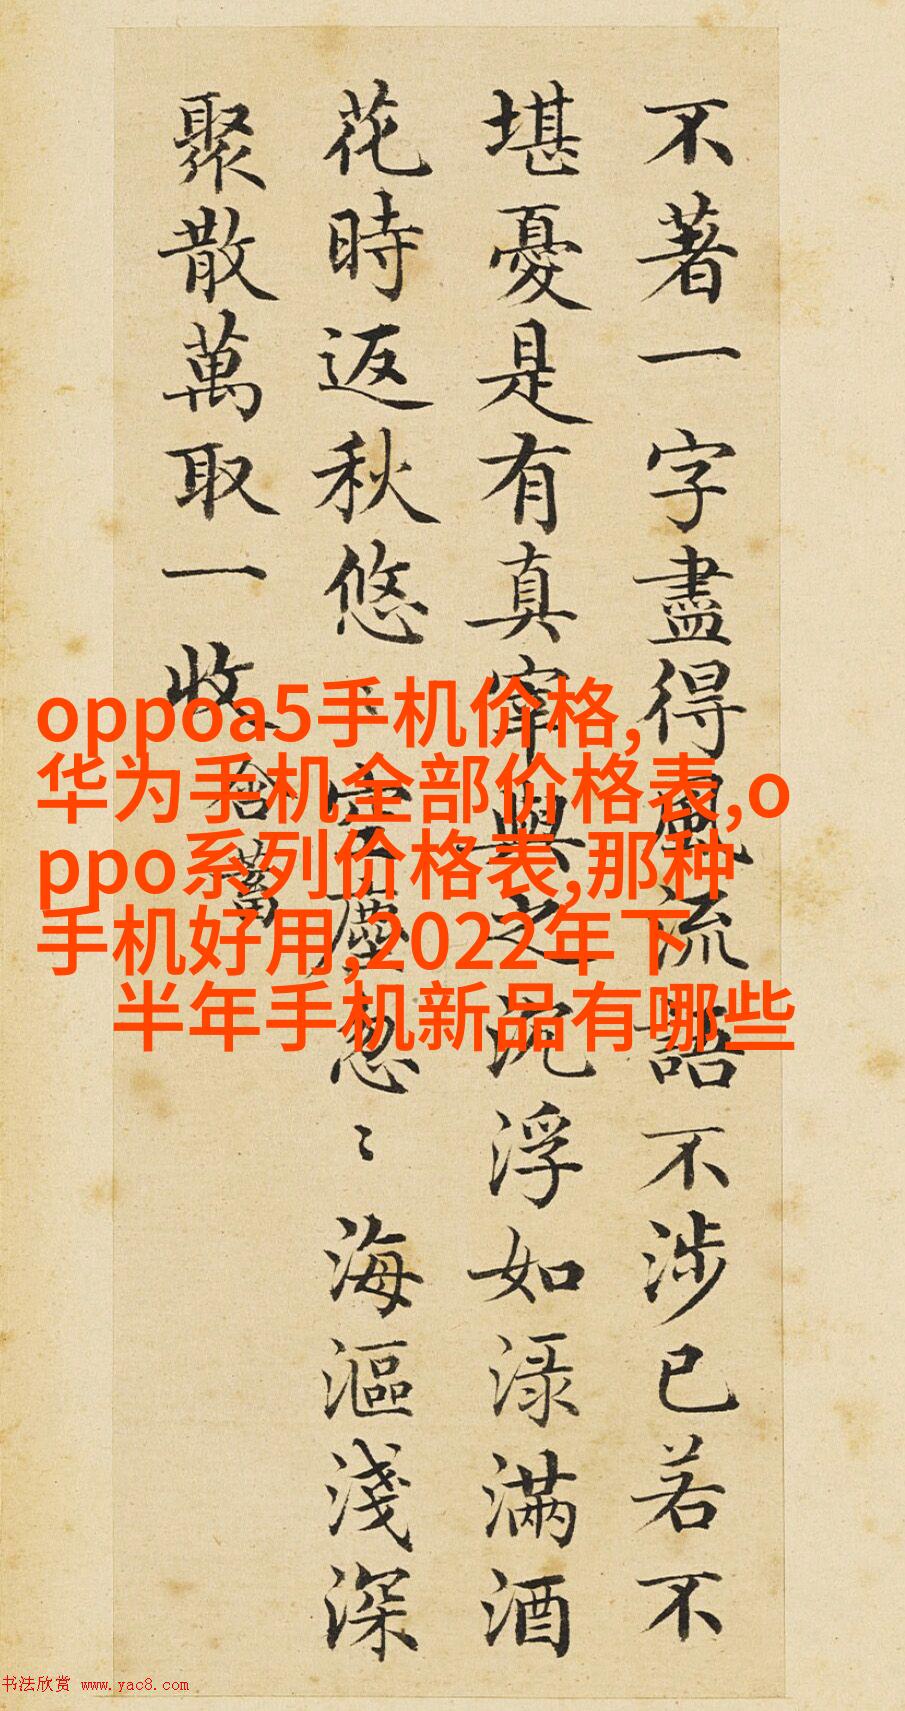 不著一字盡得風流語不涉已若不
堪憂是有真宰與之沉浮如渌滿酒
花時返秋悠〻空塵忽〻海漚淺深
聚散萬取一收
含蓄
oppoa5手机价格,
华为手机全部价格表,o
ppo系列价格表,那种
手机好用,2022年下
半年手机新品有哪些
书法欣赏 www.yac8.com